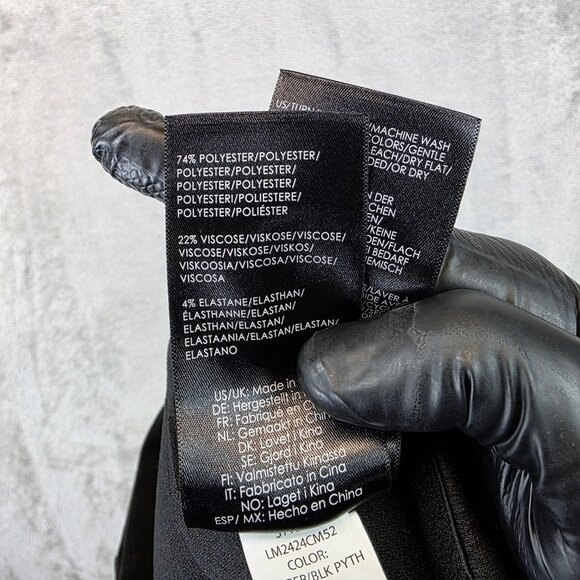 74% POLYESTER/POLYESTER/
POLYESTER/POLYESTER/
POLYESTER/POLYESTER/
POLYESTERI/POLIESTERE/
POLYESTER/POLIÉSTER
22% VISCOSE/VISKOSE/VISCOSE/
VISCOSE/VISKOSE/VISKOS/
VISKOOSIA/VISCOSA/VISCOSE/
VISCOSA
4% ELASTANE/ELASTHAN/
ÉLASTHANNE/ELASTAN/
ELASTHAN/ELASTAN/
ELASTAANIA/ELASTAN/ELASTAN/
ELASTANO
US/UK: Made in
DE: Hergestellt in
FR: Fabriqué en C
NL: Gemaakt in Chin
DK: Lavet i Kina
SE: Gjord i Kina
FI: Valmistettu Kiinassa
IT: Fabbricato in Cina
NO: Laget i Kina
ESP/ MX: Hecho en China
US/TURN
/MACHINE WASH
OLORS/GENTLE
EACH/DRY FLAT/
DED/OR DRY
N DER
CHEN
EN/
/KEINE
DEN/FLACH
I BEDARF
EMISCH
/LAVER À
IDE AVE
LM2424CM52
COLOR:
DER/BLK PYTH